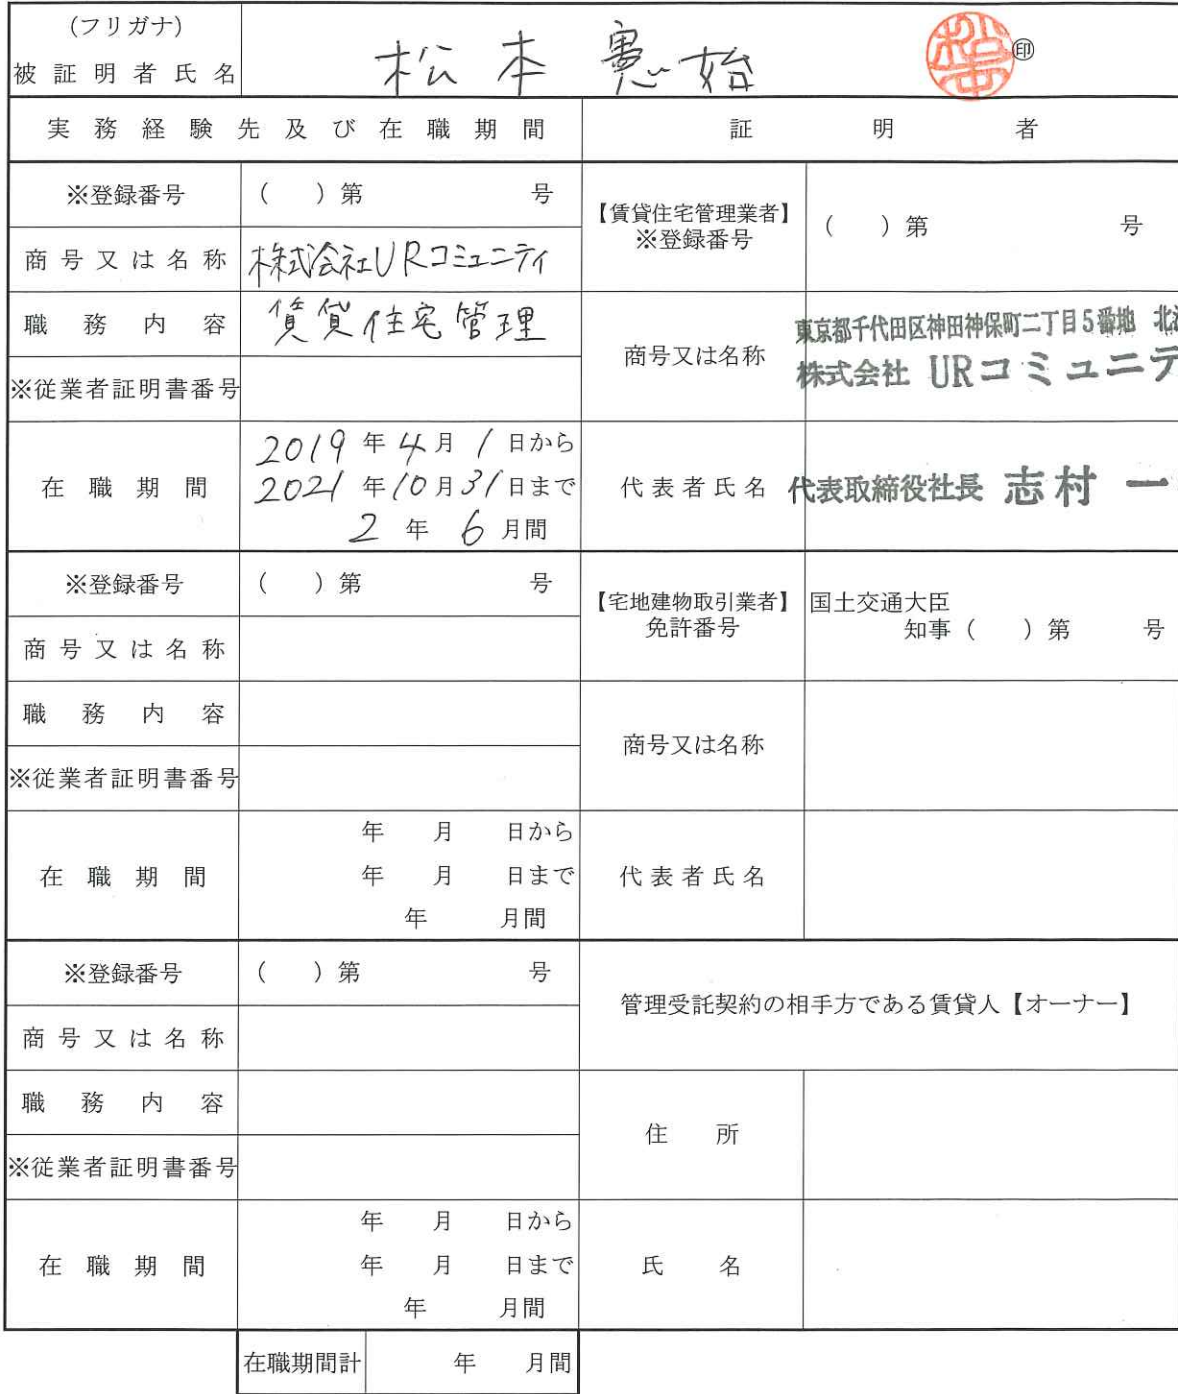 (フリガナ)
被証明者氏名 松本憲始 ㊞
実務経験先及び在職期間 証明者
※登録番号 ( )第 号
【賃貸住宅管理業者】
※登録番号 ( )第 号
商号又は名称 株式会社URコミュニティ
職務内容 賃貸住宅管理
商号又は名称 東京都千代田区神田神保町二丁目5番地 北
株式会社 URコミュニテ
※従業者証明書番号
在職期間 2019年4月1日から
2021年10月31日まで
2年6月間
代表者氏名 代表取締役社長 志村 一
※登録番号 ( )第 号
【宅地建物取引業者】
免許番号
国土交通大臣
知事( )第 号
商号又は名称
職務内容
商号又は名称
※従業者証明書番号
在職期間 年 月 日から
年 月 日まで
年 月間
代表者氏名
※登録番号 ( )第 号
管理受託契約の相手方である賃貸人【オーナー】
商号又は名称
職務内容
住所
※従業者証明書番号
在職期間 年 月 日から
年 月 日まで
年 月間
氏名
在職期間計 年 月間